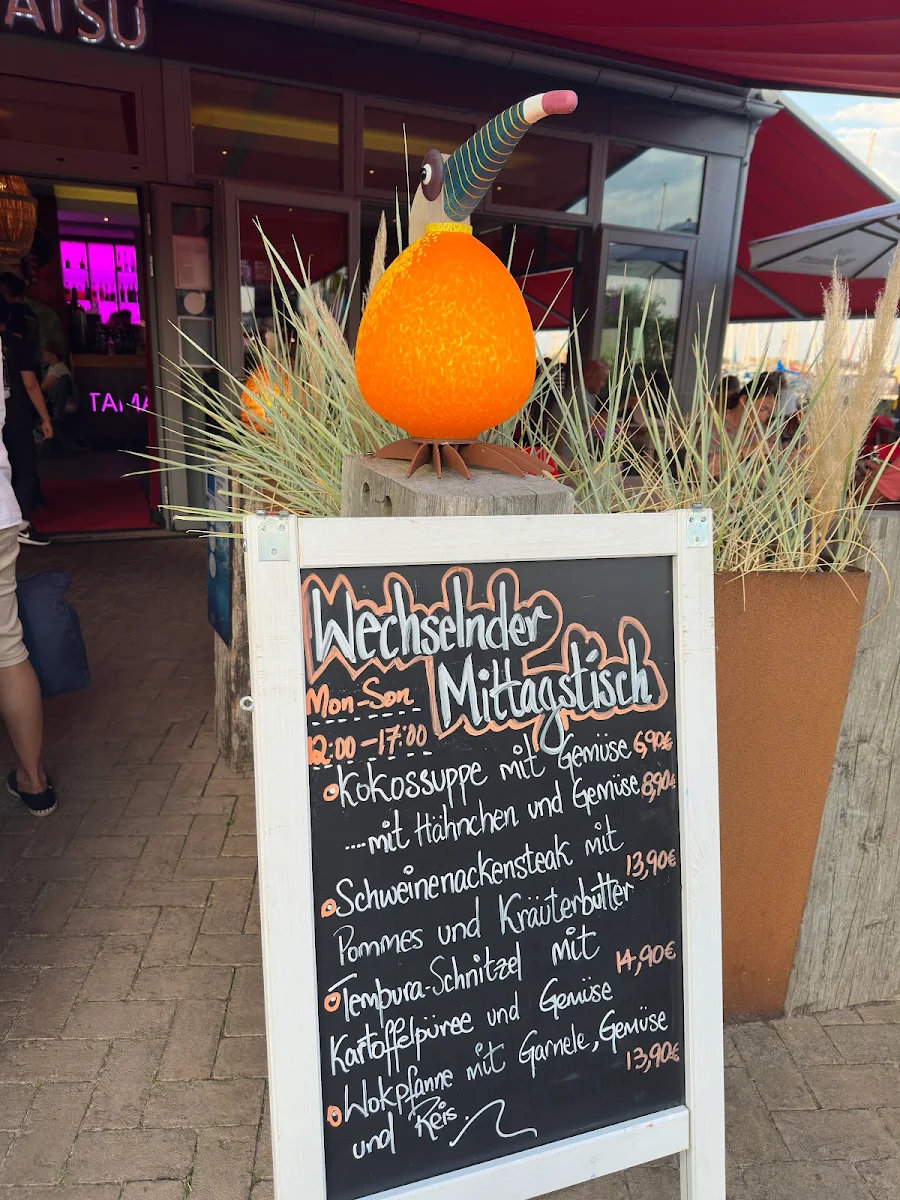 ATSU
TAMA
Wechselnder
Mittagstisch
Mon-Son
12:00-17:00
Kokossuppe mit Gemüse 6,90€
....mit Hähnchen und Gemüse 8,90€
Schweinenackensteak mit
13,90€
Pommes und Kräuterbutter
Tempura-Schnitzel mit
14,90€
Kartoffelpüree und Gemüse
Wokpfanne mit Garnele, Gemüse
13,90€
und Reis